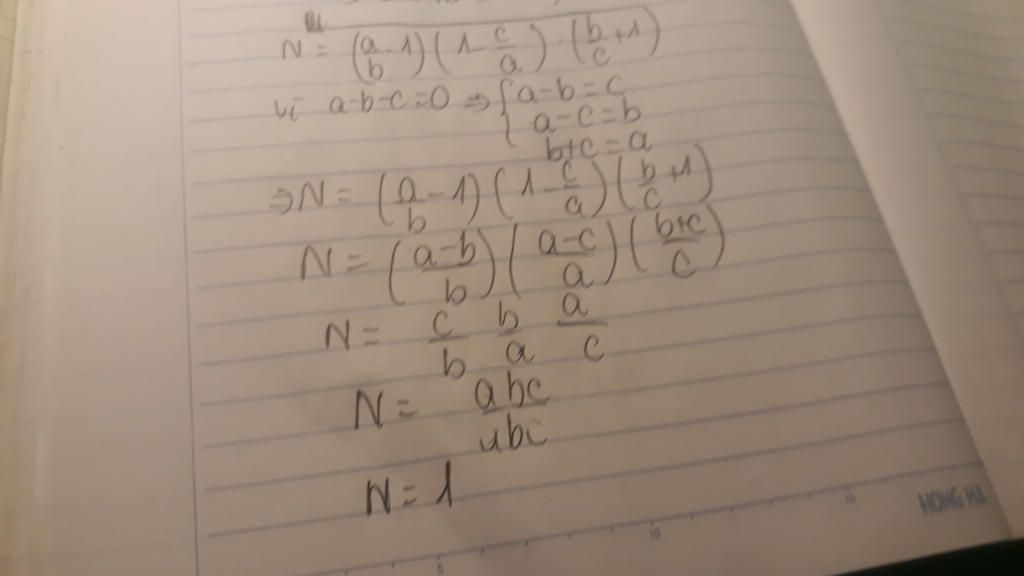 N = (a/b - 1)(1 - c/a) . (b/c + 1)
vì a-b-c=0 ⇒ { a-b=c
a-c=b
b+c=a
⇒ N = (a/b - 1)(1 - c/a)(b/c + 1)
N = ((a-b)/b)((a-c)/a)((b+c)/c)
N = c/b b/a a/c
N = abc/abc
N = 1
HONG HA
5 10 15